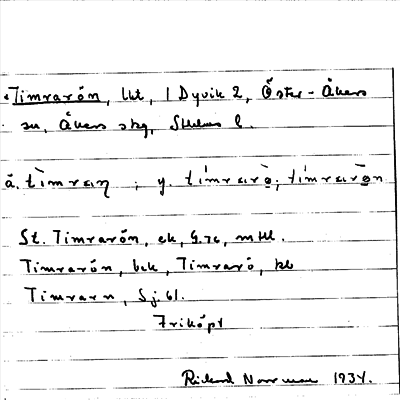 Timrarön, lht, 1 Dyvik 2, Öster-Åkers
sn, Åkers skg, Sthlms l.
ä. tìmraŋ ; y. tímrarö̀; tímrarö̀n
St. Timrarön, ek, G. 7c, mtl.
Timrarön, bek, Timrarö, kb
Timrarn, Sj. 61.
Friköpt
Rickard Norrman 1934.